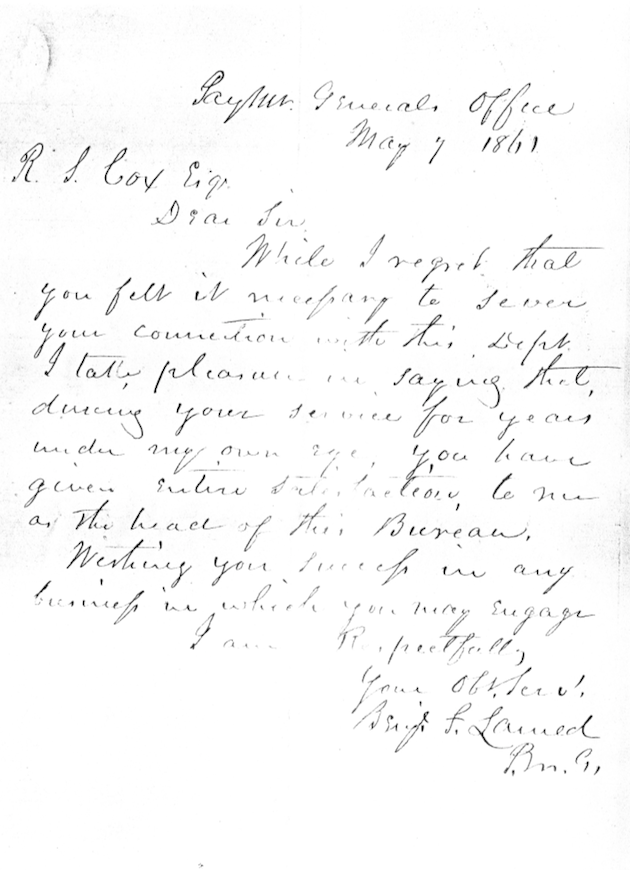 Paymr. Generals Office
May 7 1861
R. S. Cox Esqr.
Dear Sir
While I regret that
you felt it necessary to sever
your connection with this Dept.
I take pleasure in saying that,
during your service for years
under my own eye, you have
given entire satisfaction, to me
as the head of this Bureau.
Wishing you success in any
business in which you may engage
I am Respectfully
Your Obt. Servt.
Benj. F. Larned
P.M.G.